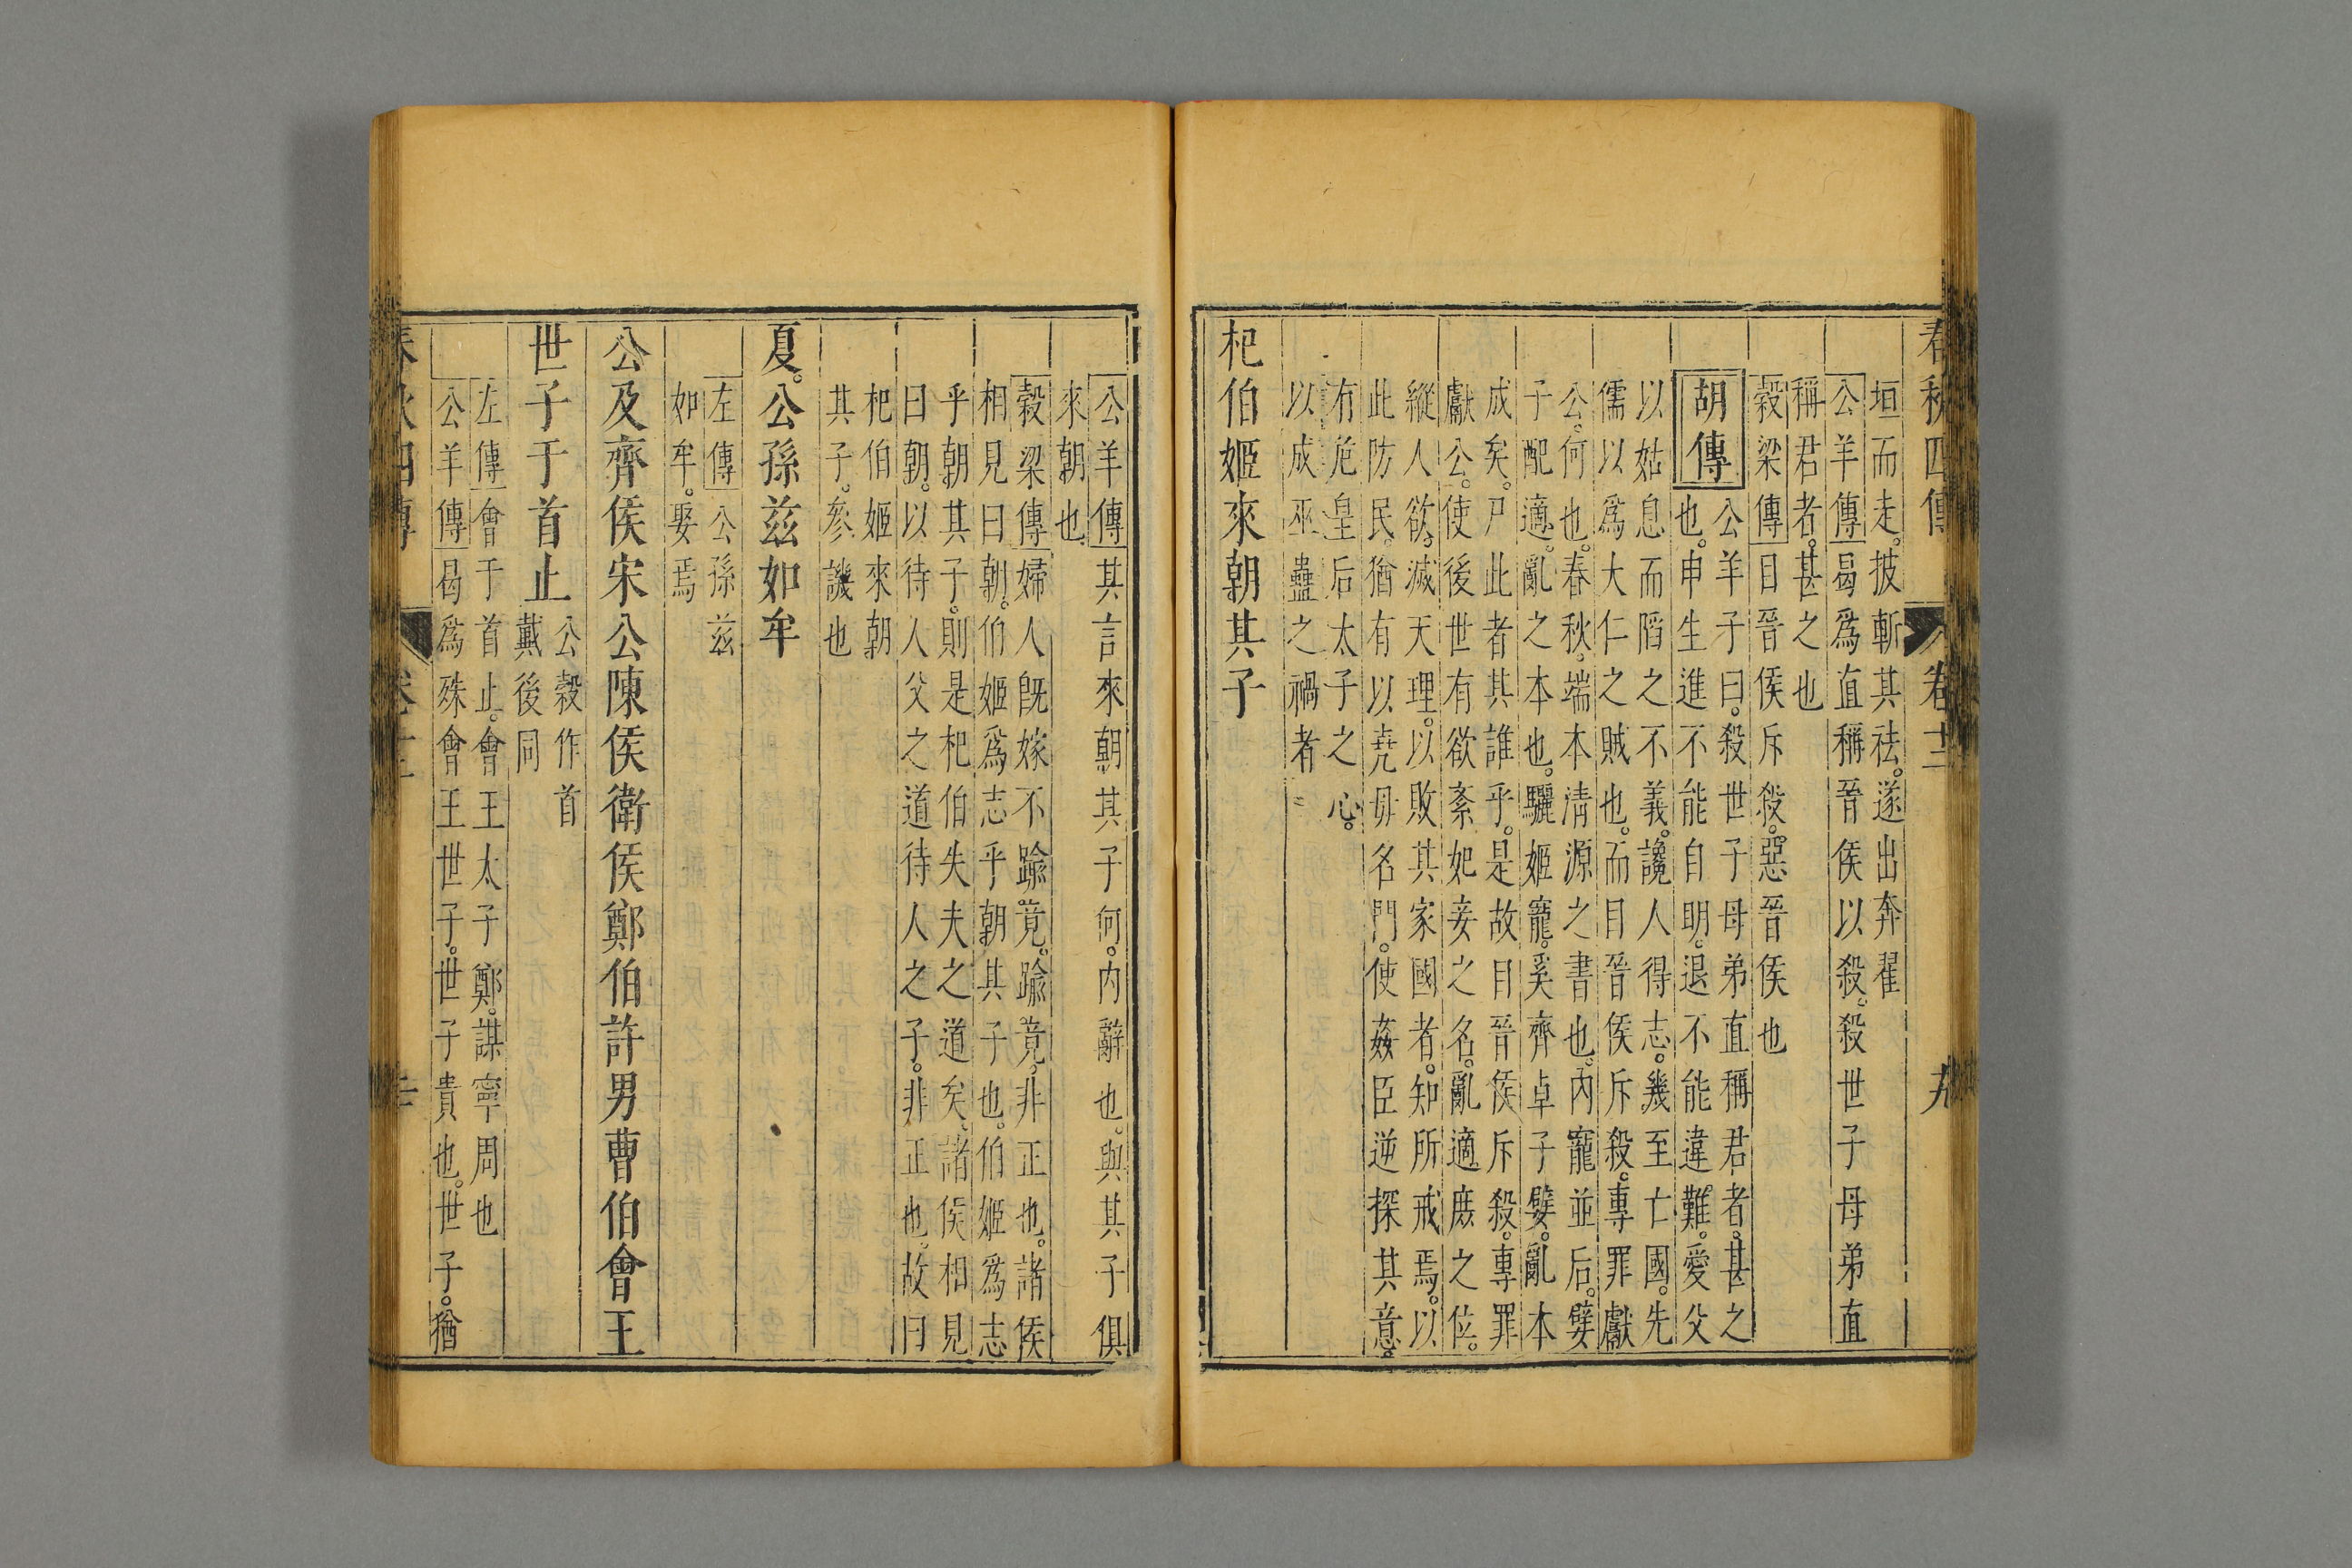 春秋四傳 卷十二 十九
垣而走。披斬其祛。遂出奔翟
公羊傳曷爲直稱晉侯以殺。殺世子母弟直
稱君者。甚之也
穀梁傳目晉侯斥殺。惡晉侯也
胡傳公羊子曰。殺世子母弟直稱君者。甚之
也。申生進不能自明。退不能違難。愛父
以姑息而陷之不義。讒人得志。幾至亡國。先
儒以爲大仁之賊也。而目晉侯斥殺。專罪獻
公。何也。春秋。端本清源之書也。內寵並后。嬖
子配適。亂之本也。驪姬寵。奚齊卓子嬖。亂本
成矣。尸此者其誰乎。是故目晉侯斥殺。專罪
獻公。使後世有欲紊妃妾之名。亂適庶之位。
縱人欲。滅天理。以敗其家國者。知所戒焉。以
此防民。猶有以堯母名門。使姦臣逆探其意。
有危皇后太子之心。
以成巫蠱之禍者
杞伯姬來朝其子
公羊傳其言來朝其子何。內辭也。與其子俱
來朝也
穀梁傳婦人旣嫁不踰竟。踰竟。非正也。諸侯
相見曰朝。伯姬爲志乎朝其子也。伯姬爲志
乎朝其子。則是杞伯失夫之道矣。諸侯相見
曰朝。以待人父之道待人之子。非正也。故曰
杞伯姬來朝
其子。參譏也
夏。公孫茲如牟
左傳公孫茲
如牟。娶焉
公及齊侯宋公陳侯衛侯鄭伯許男曹伯會王
世子于首止公穀作首
戴後同
左傳會于首止。會王太子鄭。謀寧周也
公羊傳曷爲殊會王世子。世子貴也。世子。猶
春秋四傳 卷十二